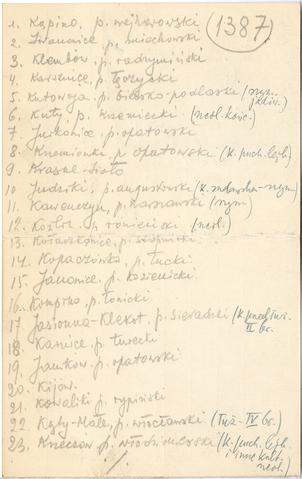 1387
1. Kępino, p. wejherowski
2. Iwanowice p. miechowski
3. Klembów, p. radzymiński
4. Karsznice, p. łęczycki
5. Kutowęga, p. Bielsko-podlaski (rzym. kościn.)
6. Kuty, p. krzemiecki (neol. kośc.)
7. Jurkowice, p. opatowski
8. Krzemionki, p. opatowski (k. puch. lejk.)
9. Krasne-Sioło
10. Judziki, p. augustowski (k. mazursko-rzym)
11. Kawenczyn, p. Warszawski (rzym)
12. Koźle, p. koniecki (neol.)
13. Kołaczkowice, p. stopnicki
14. Kopaczówka, p. łucki
15. Janowice, p. kozienicki
16. Kompina, p. łowicki
17. Jasionna-Klekot, p. Sieradzki (k. przedłuż. II br.)
18. Karnice, p. turecki
19. Janków, p. opatowski
20. Kijów.
21. Kowalki p. rypiński
22. Kąty-Małe, p. włocławski (łuż. - IV br.)
23. Krzeczów, p. włodzimierski (k. puch. lejk. i inne kult. neol.)